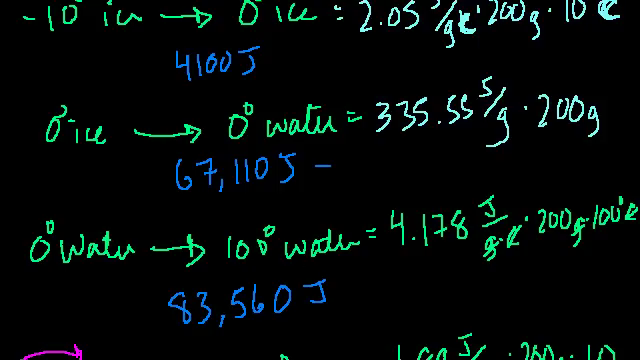 -10° ice → 0° ice = 2.05 J/g K · 200g · 10 K
4100 J
0° ice → 0° water = 335.55 J/g · 200g
67,110 J -
0° water → 100° water = 4.178 J/g·K · 200g · 100°K
83,560 J